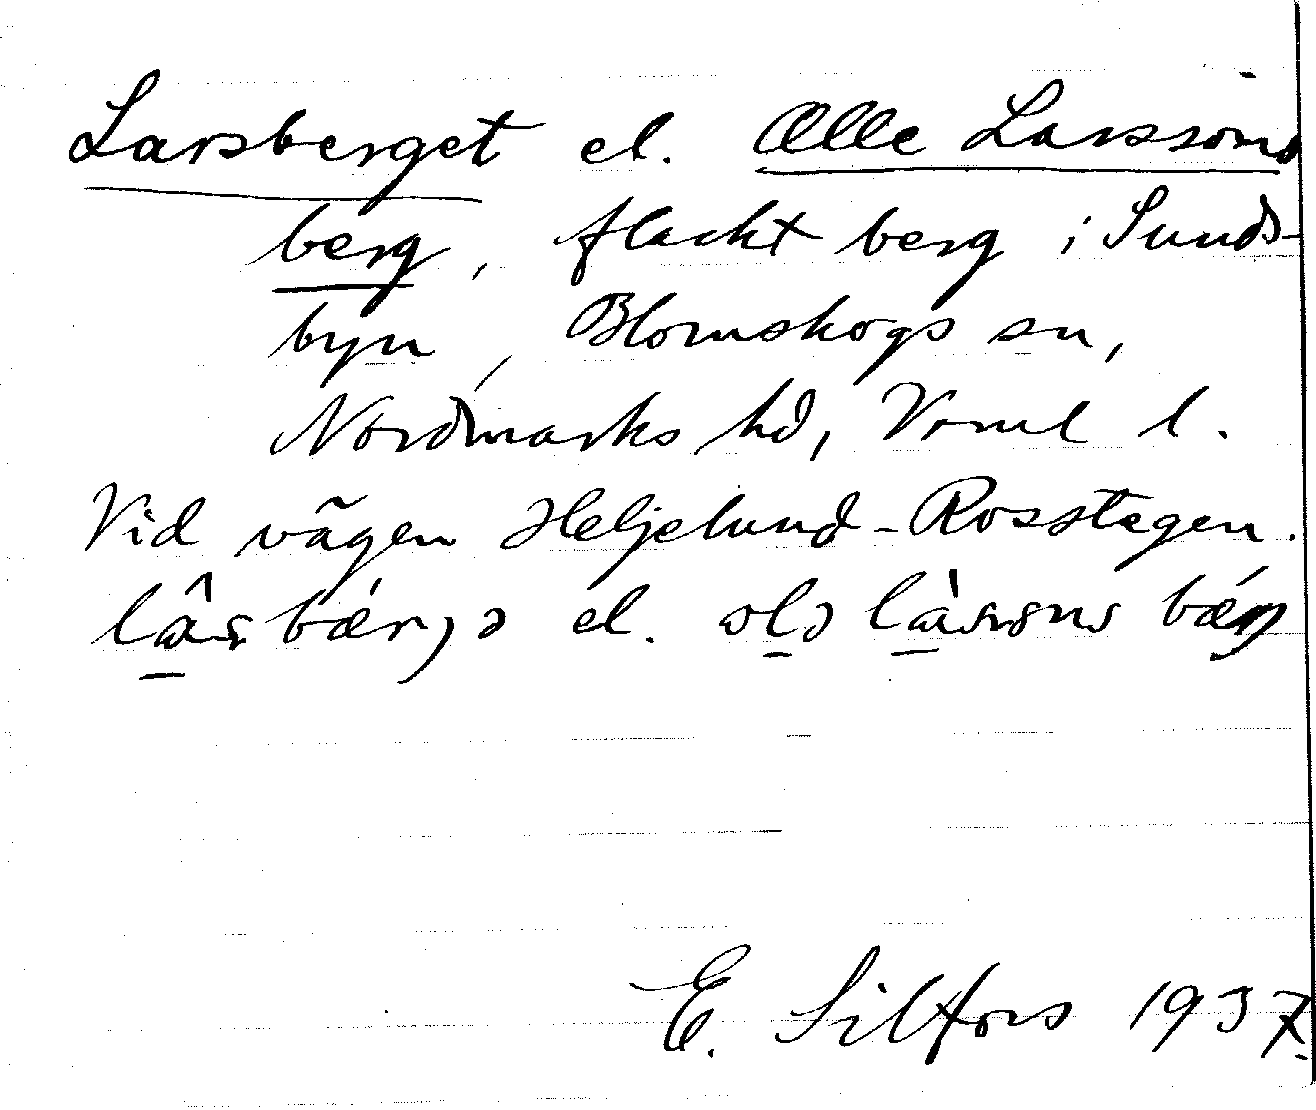 Larsberget el. Olle Larssons
berg, flackt berg i Sunds-
byn, Blomskogs sn,
Nordmarks hd, Vrml l.
Vid vägen Heljelund - Rosstegen.
el.
E. Silfors 1937.